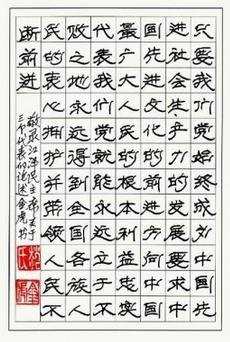 只要我们党始终成为中国先
进社会生产力的发展要求中
国先进文化的前进方向中国
最广大人民的根本利益忠实
代表我们党就能永远立于不
败之地永远得到全国各族人
民的衷心拥护并带领人民不
断前进
敬录江泽民主席关于
三个代表的论述金虎书